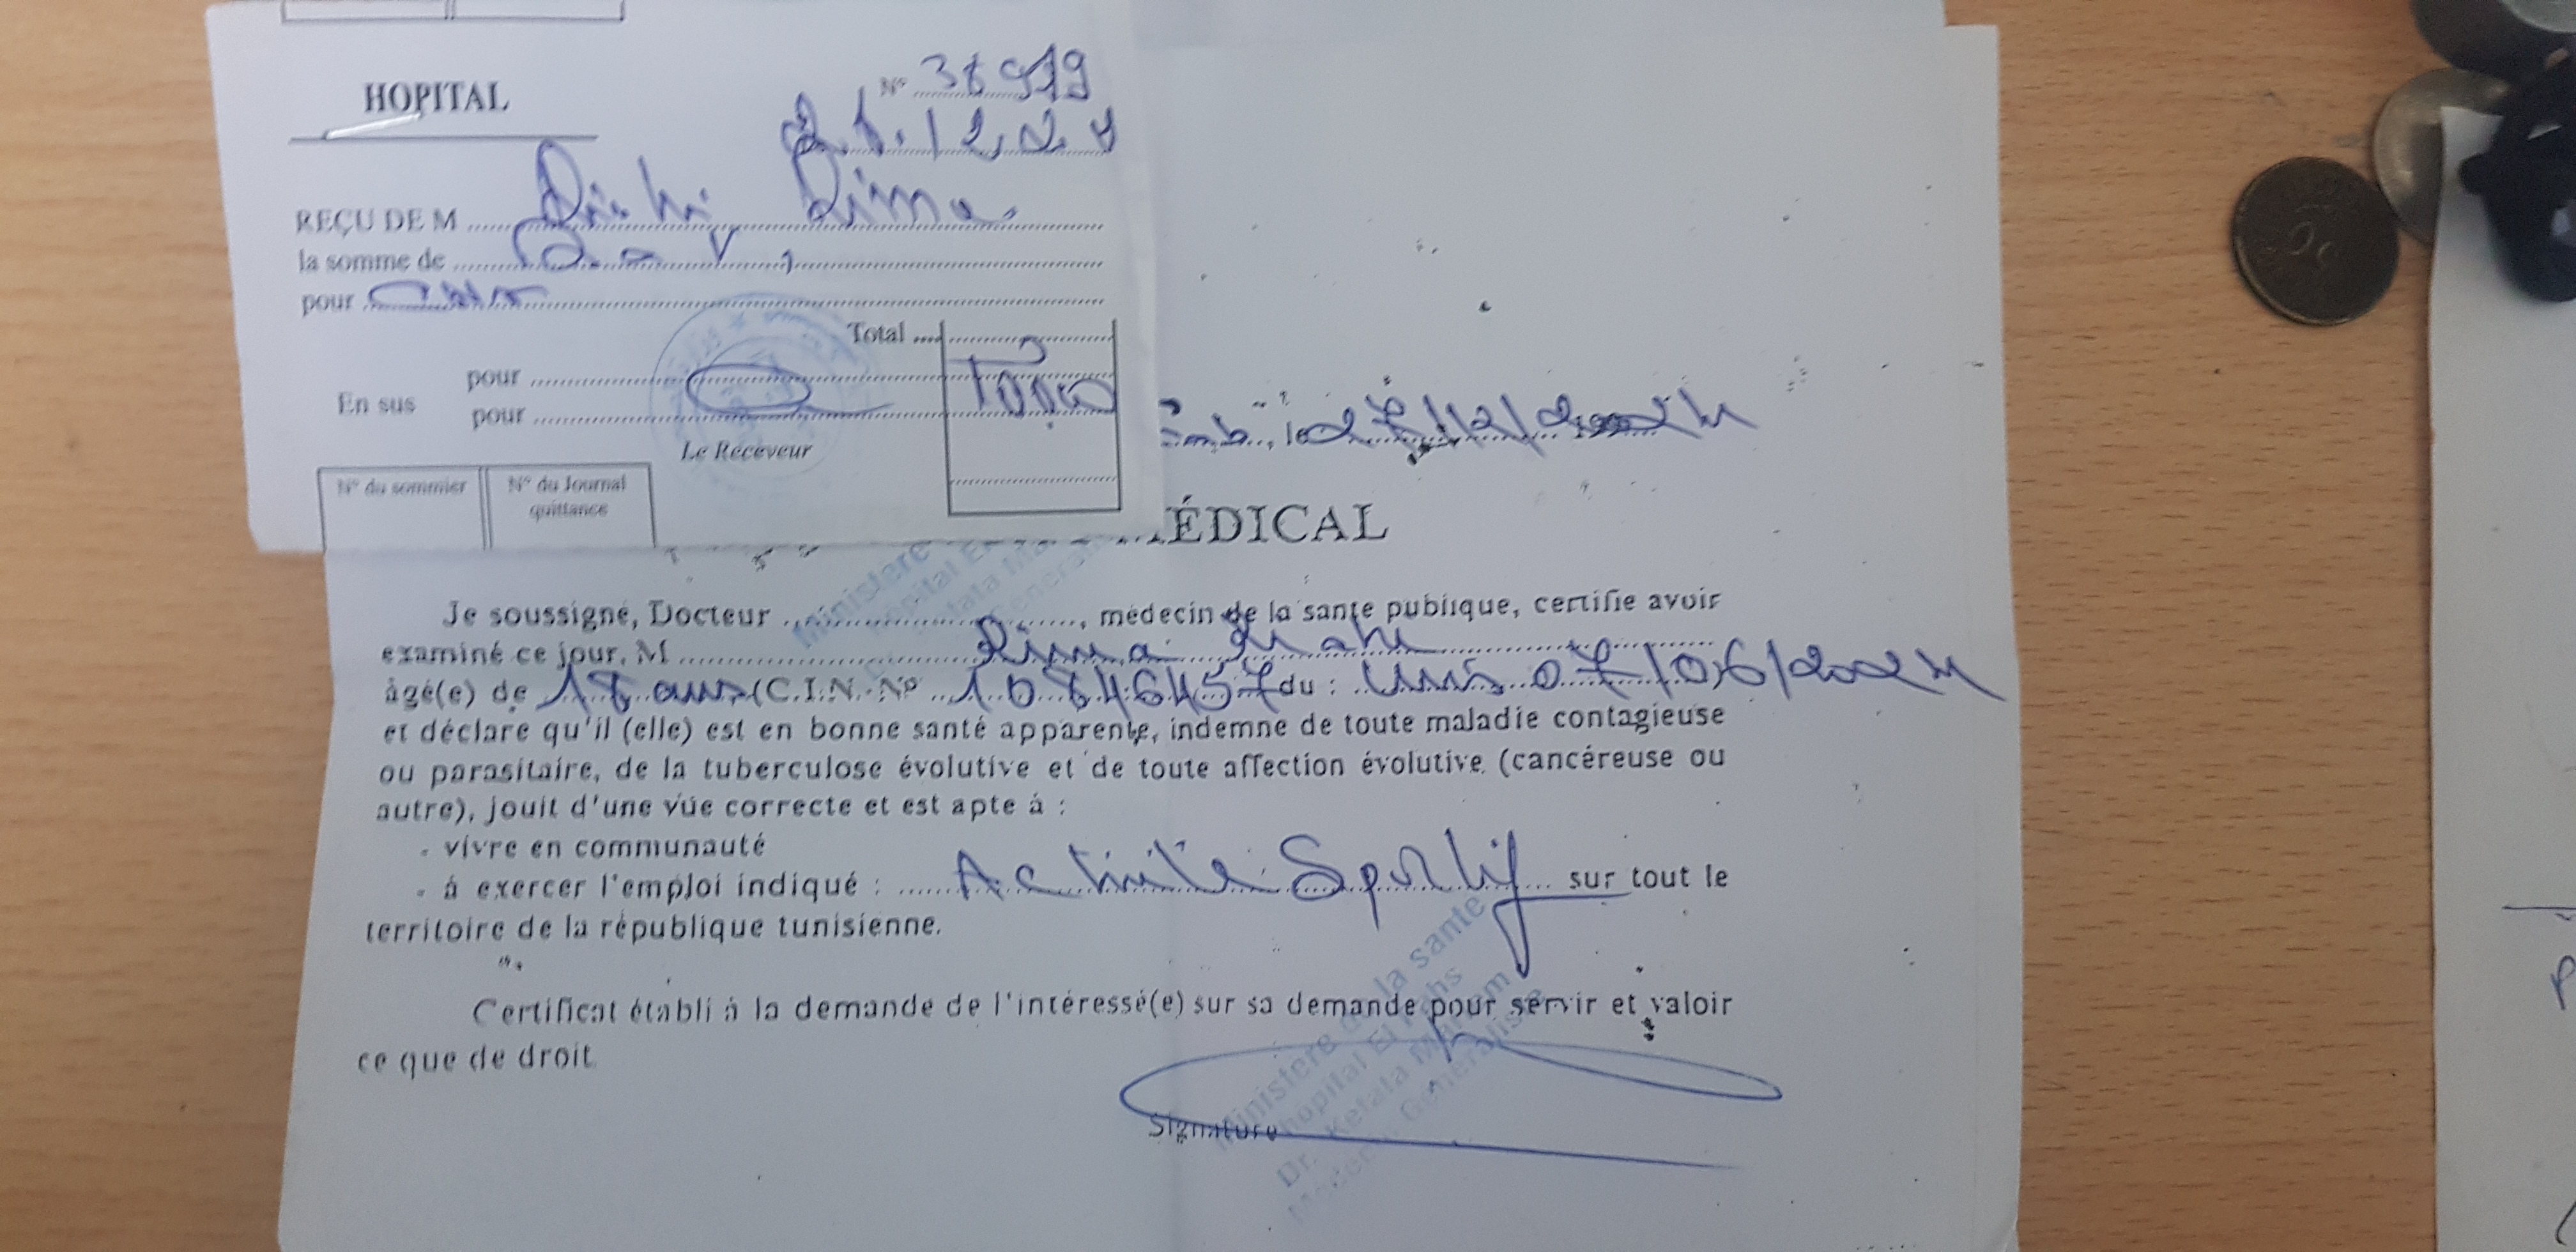 HOPITAL
N°
REÇU DE M
la somme de
pour
Total
pour
En sus
pour
Le Receveur
N° du sommier
N° du Journal
quittance
le 27/12/2024
ÉDICAL
Je soussigné, Docteur ...................., médecin de la santé publique, certifie avoir
examiné ce jour, M .................... Rima
âgé(e) de 18 ans (C.I.N. N° du : 07/06/2024
et déclare qu'il (elle) est en bonne santé apparente, indemne de toute maladie contagieuse
ou parasitaire, de la tuberculose évolutive et de toute affection évolutive (cancéreuse ou
autre), jouit d'une vue correcte et est apte à :
- vivre en communauté
- à exercer l'emploi indiqué : Activité Sportif sur tout le
territoire de la république tunisienne.
Certificat établi à la demande de l'intéressé(e) sur sa demande pour servir et valoir
ce que de droit
Signature
Ministere de la sante
hopital El Fahs
Dr. Ketata Mariem
Medecin Generaliste